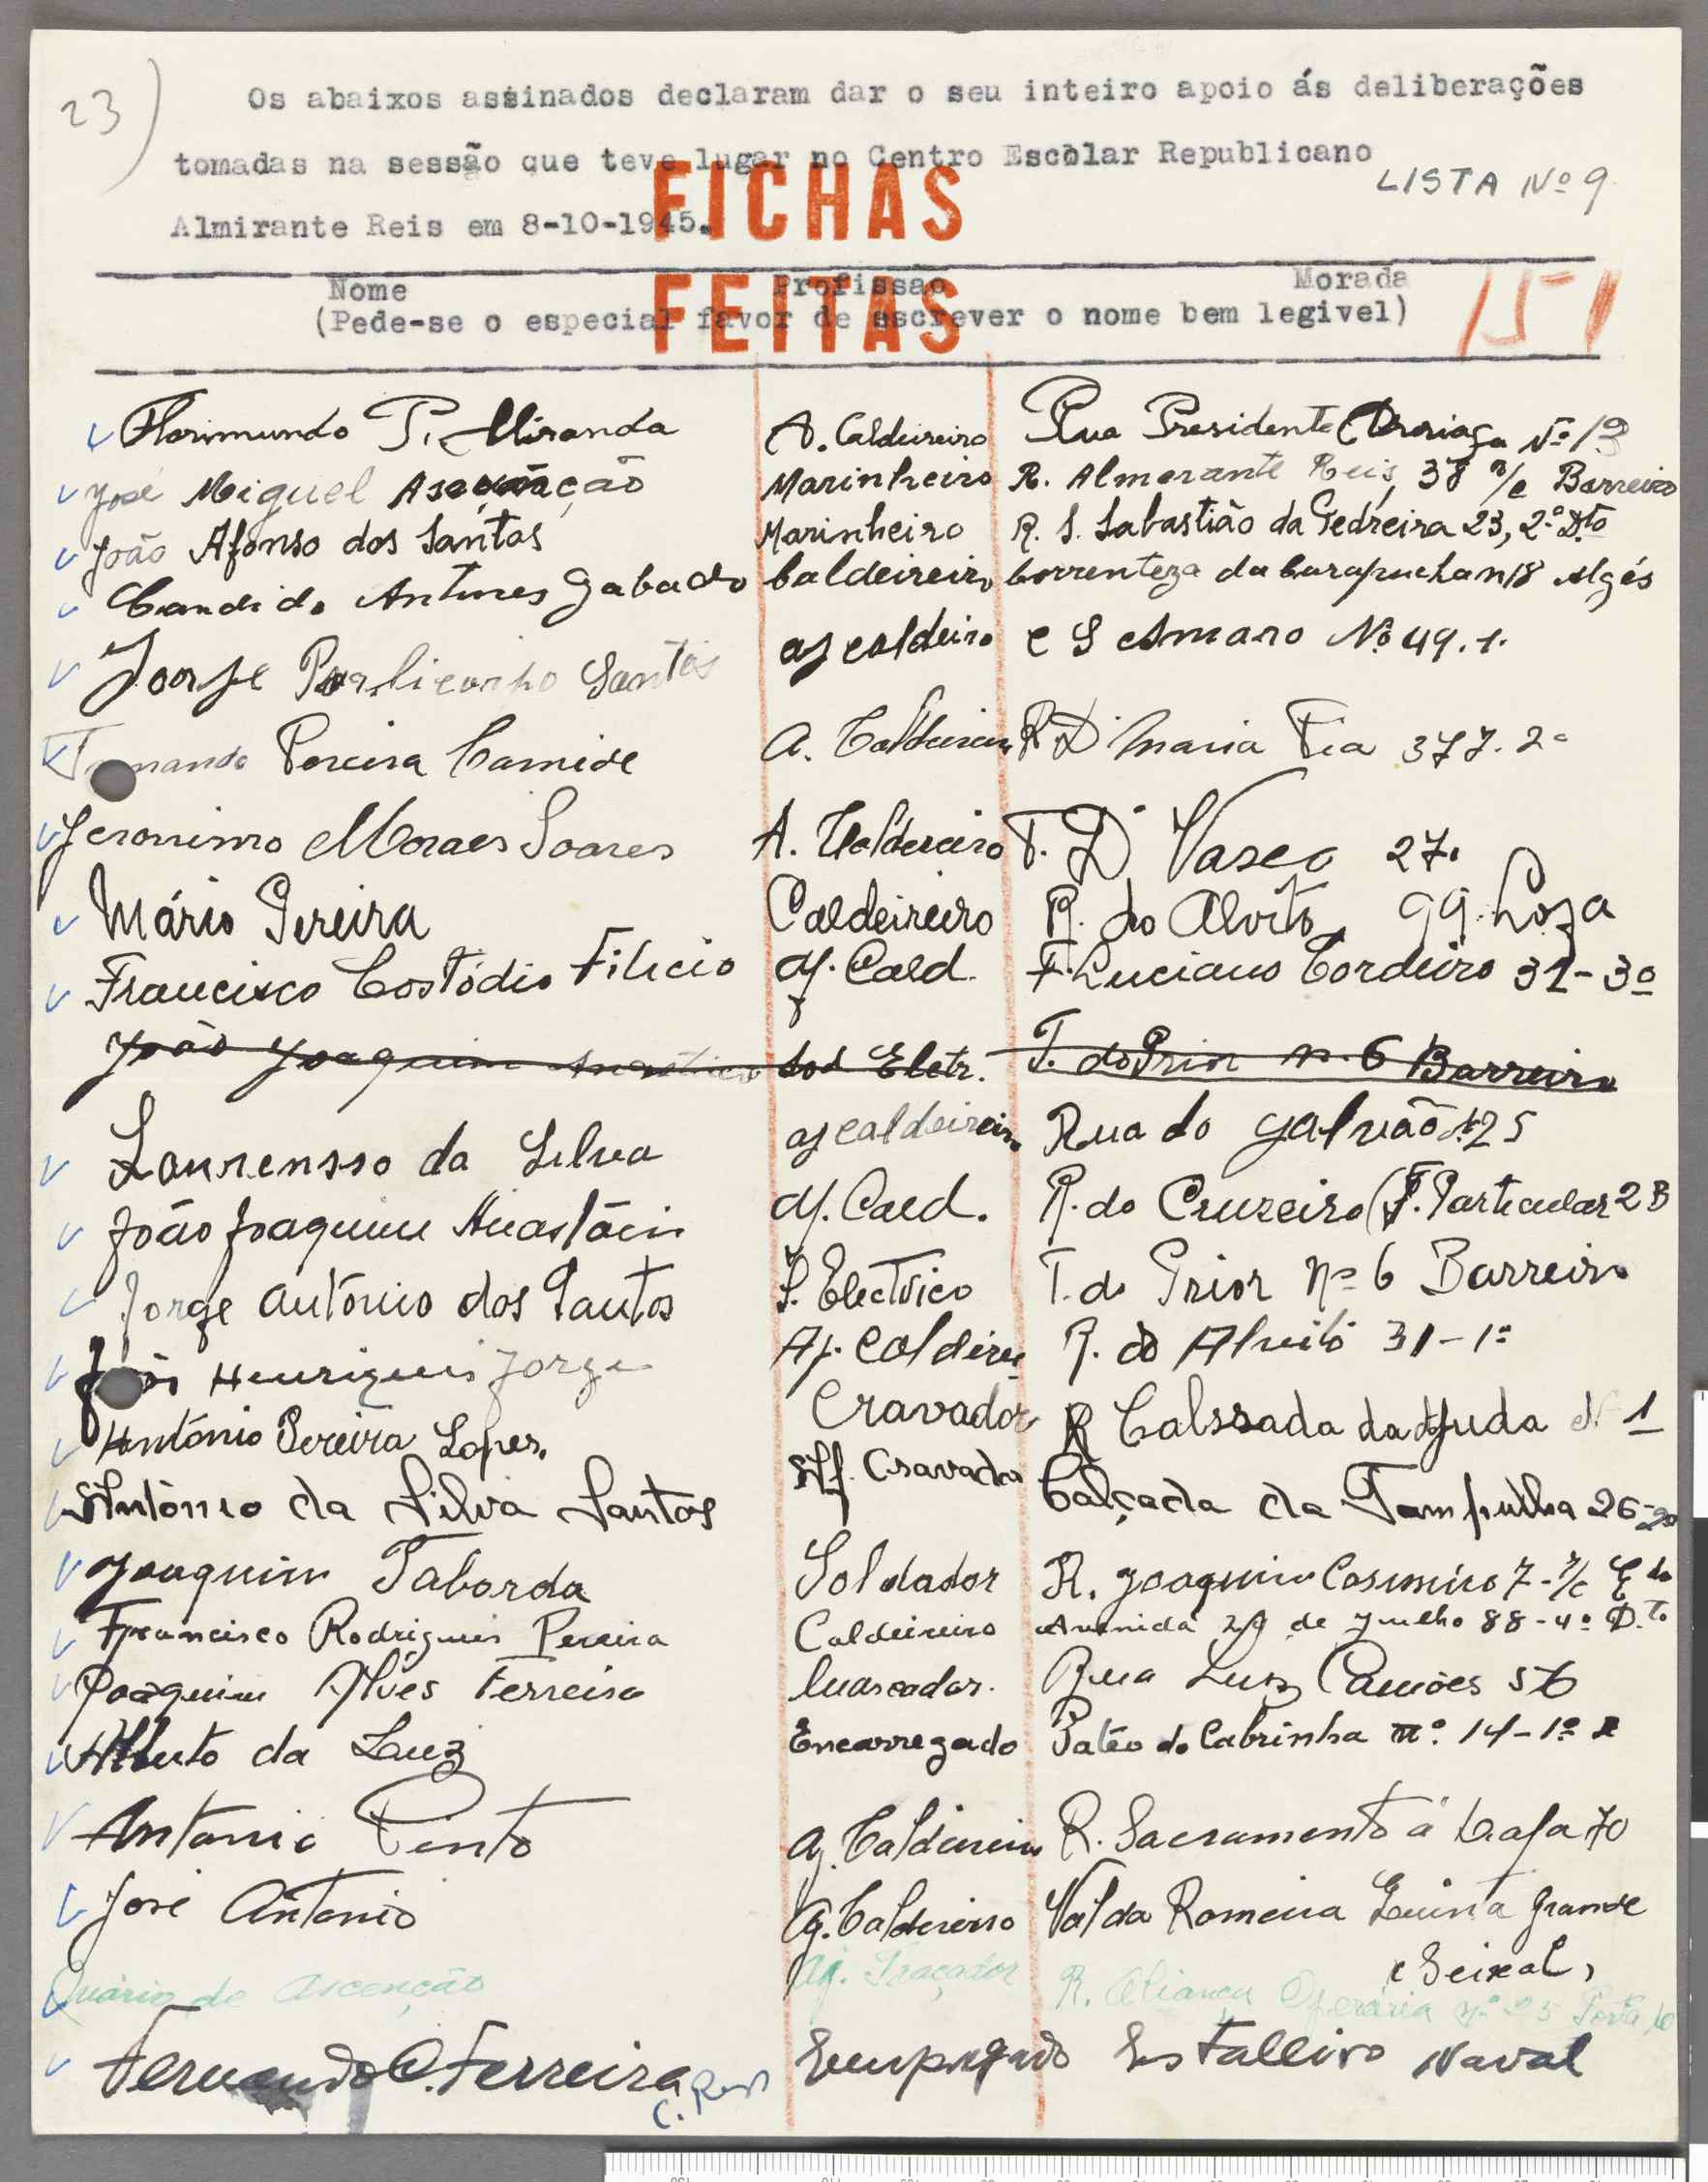 23)
Os abaixos assinados declaram dar o seu inteiro apoio ás deliberações
tomadas na sessão que teve lugar no Centro Escolar Republicano
LISTA Nº 9
Almirante Reis em 8-10-1945.
FICHAS
FEITAS
Nome Profissão Morada
(Pede-se o especial favor de escrever o nome bem legivel)
151
Florimundo P. Miranda A. Caldeireiro Rua Presidente Nº
José Miguel Asc Marinheiro R. Almerante Reis, 38 r/c Barreiro
João Afonso dos Santos Marinheiro R. S. Sabastião da Pedreira 23, 2.º Dto
Candido Antunes Gabado Caldeireiro Correnteza da Carapucha n 18 Algés
Jorje Santos aj caldeiro C S Amaro Nº 49.1.
Pereira Camide A. Caldeireiro R D. Maria Pia 377. 2º
Jeronimo Moraes Soares A. Caldeireiro T. D. Vasco 27.
Mário Pereira Caldeireiro R. do Alvito, 99. Loja
Francisco Costódio Filicio Aj. Cald. Luciano Cordeiro 31-3º
João Joaquim Sol Eletr. T. do Prior n. 6 Barreiro
Laurensso da Silva aj caldeireiro Rua do Galvão Nº 25
João Joaquim Anastácio Aj. Cald. R. do Cruzeiro (T. Particular 2 B
Jorge António dos Santos S. Electrico T. do Prior nº 6 Barreiro
Henriques Jorge Aj. Caldeire R. do Alvito 31-1º
António Pereira Lopes. Cravador R Calssada da Ajuda Nº 1
António da Silva Santos Aj. Cravador Calçada da Tampulha 26-2º
Joaquim Taborda Soldador R. Joaquim Casimiro 7-r/c E do
Francisco Rodrigues Pereira Caldeireiro Avenida 24 de Julho 88-4º D.to
Joaquim Alves Ferreira Rua Luiz Camões 56
Alberto da Luz Encarregado Patéo do Cabrinha nº. 14-1º
Antonio Pinto Aj. Caldeireiro R. Sacramento á Lapa 70
José Antonio Aj. Caldeireiro Val da Romeira Quinta Grande
(Seixal,
de Ascenção Aj. Traçador R. Aliança Operária nº 25 Porta 10
Fernando C. Ferreira Empregado Estalleiro Naval
C.